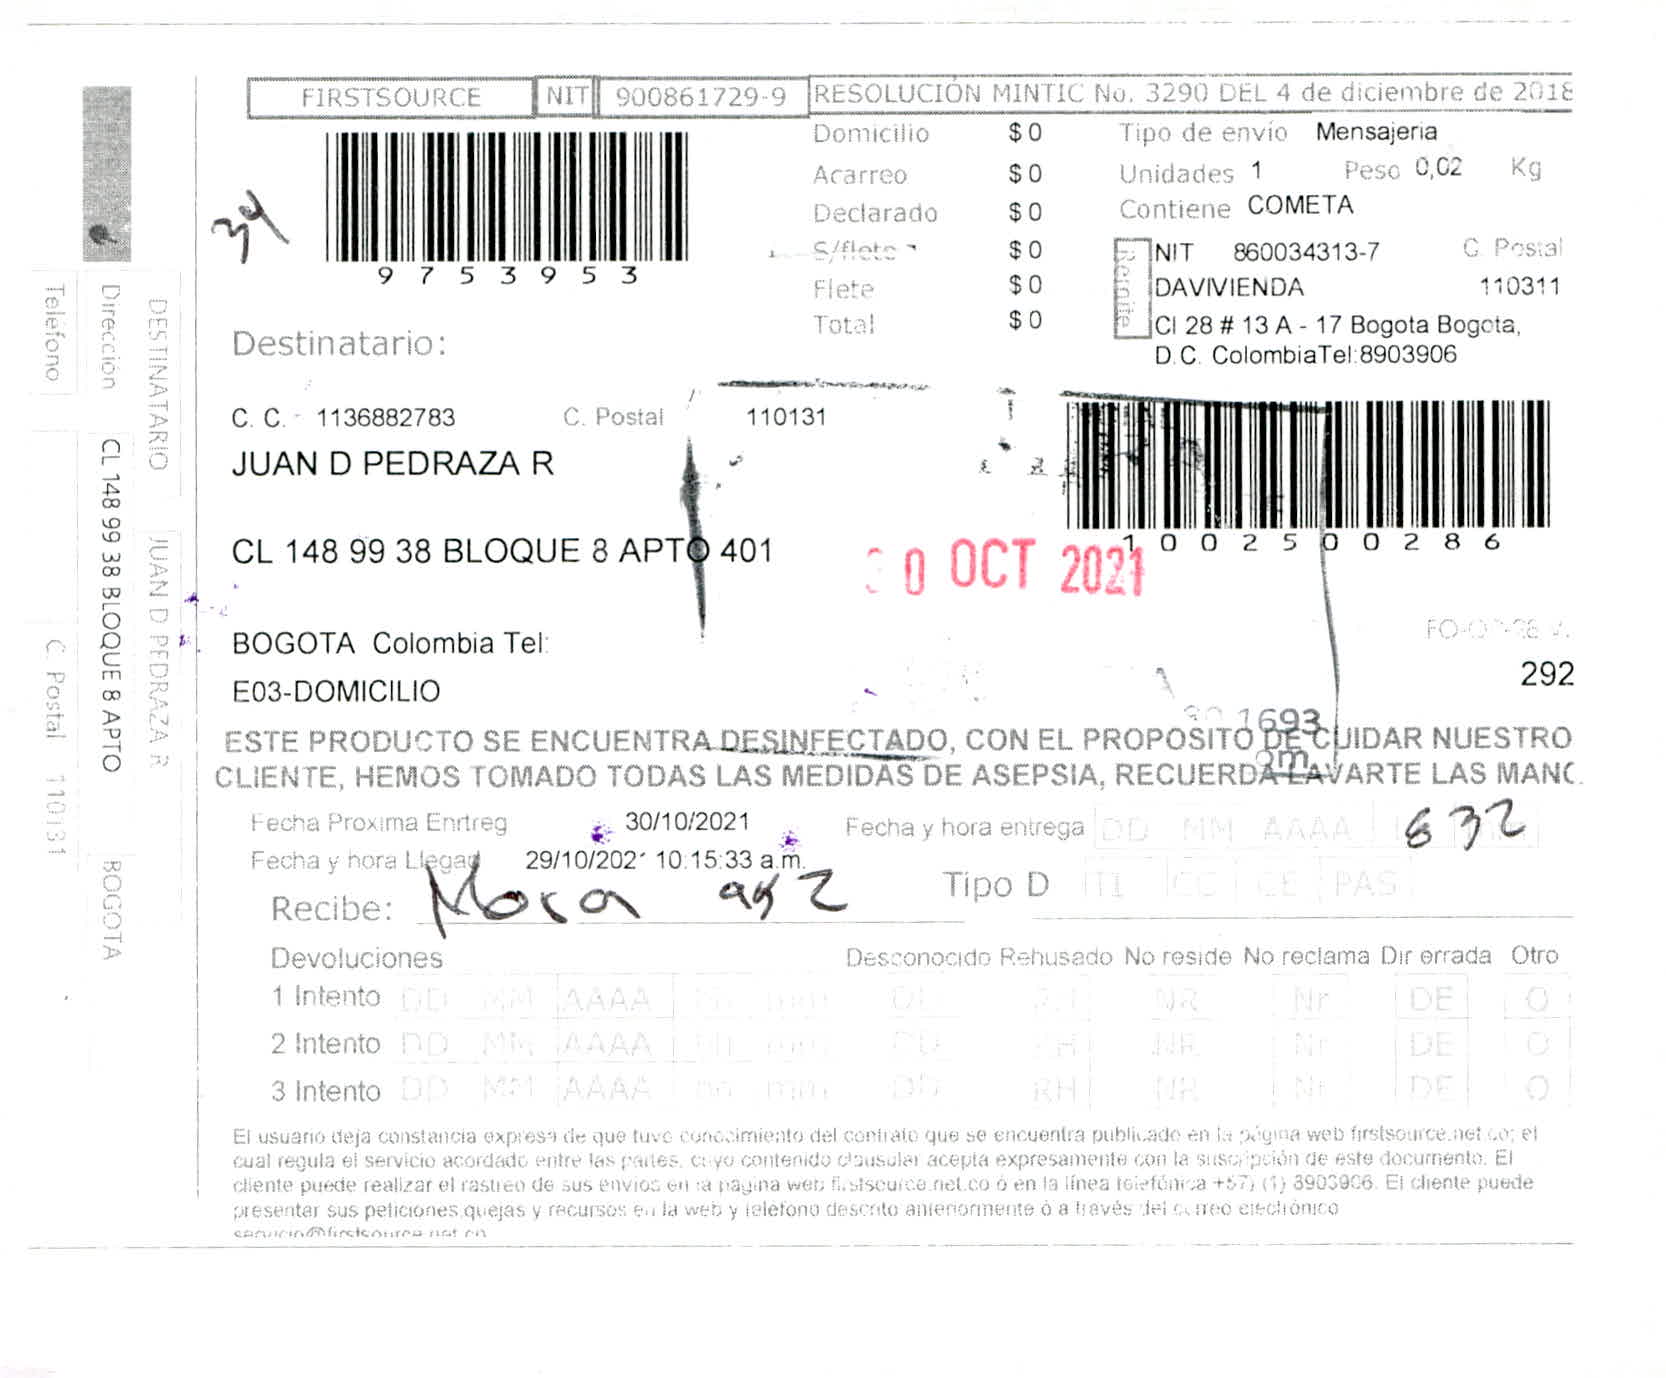 FIRSTSOURCE NIT 900861729-9 RESOLUCIÓN MINTIC No. 3290 DEL 4 de diciembre de 2018
34
9753953
Domicilio $ 0
Acarreo $ 0
Declarado $ 0
S/flete $ 0
Flete $ 0
Total $ 0
Tipo de envío Mensajeria
Unidades 1 Peso 0,02 Kg
Contiene COMETA
Remite
NIT 860034313-7 C. Postal
DAVIVIENDA 110311
Cl 28 # 13 A - 17 Bogota Bogota,
D.C. ColombiaTel:8903906
Destinatario:
C. C. - 1136882783 C. Postal 110131
JUAN D PEDRAZA R
CL 148 99 38 BLOQUE 8 APTO 401
10025000286
30 OCT 2021
BOGOTA Colombia Tel:
292
E03-DOMICILIO
1693
ESTE PRODUCTO SE ENCUENTRA DESINFECTADO, CON EL PROPOSITO DE CUIDAR NUESTRO
CLIENTE, HEMOS TOMADO TODAS LAS MEDIDAS DE ASEPSIA, RECUERDA LAVARTE LAS MANC
Fecha Proxima Enrtreg 30/10/2021
Fecha y hora entrega DD MM AAAA 832
Fecha y hora Llegad 29/10/2021 10:15:33 a.m.
Tipo D TI CC CE PAS
Recibe: Mora
Devoluciones Desconocido Rehusado No reside No reclama Dir errada Otro
1 Intento DD MM AAAA hh mm DD RH NR Nr DE O
2 Intento DD MM AAAA hh mm DD RH NR Nr DE O
3 Intento DD MM AAAA hh mm DD RH NR Nr DE O
El usuario deja constancia expresa de que tuvo conocimiento del contrato que se encuentra publicado en la página web firstsource.net.co; el
cual regula el servicio acordado entre las partes, cuyo contenido clausular acepta expresamente con la suscripción de este documento. El
cliente puede realizar el rastreo de sus envios en la pagina web firstsource.net.co ó en la línea telefónica +57) (1) 8903906. El cliente puede
presentar sus peticiones,quejas y recursos en la web y telefono descrito anteriormente ó a través del correo electrónico
servicio@firstsource.net.co
DESTINATARIO JUAN D PEDRAZA R
Dirección CL 148 99 38 BLOQUE 8 APTO BOGOTA
Teléfono C. Postal 110131